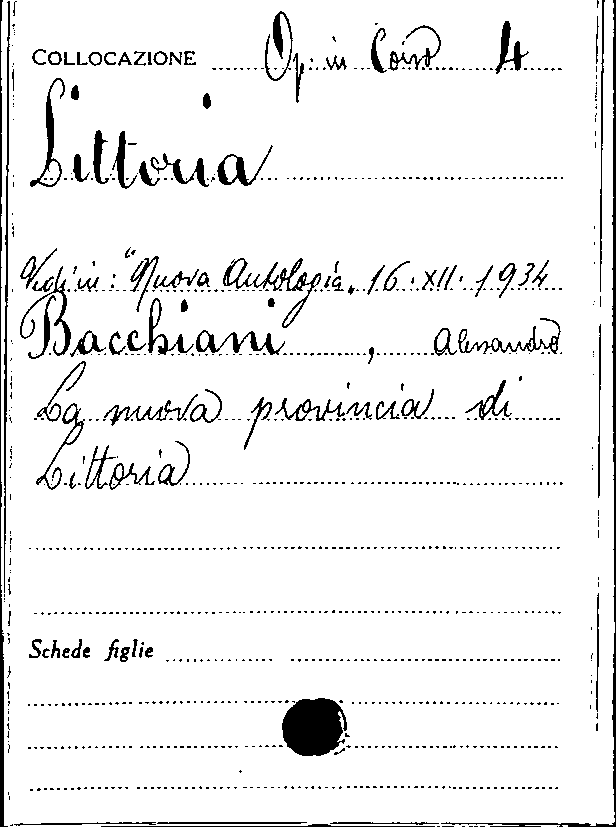 COLLOCAZIONE Op. in Corso 4
Littoria
Vedi in: "Nuova Antologia„ 16.XII.1934
Bacchiani, Alessandro
La nuova provincia di
Littoria
Schede figlie